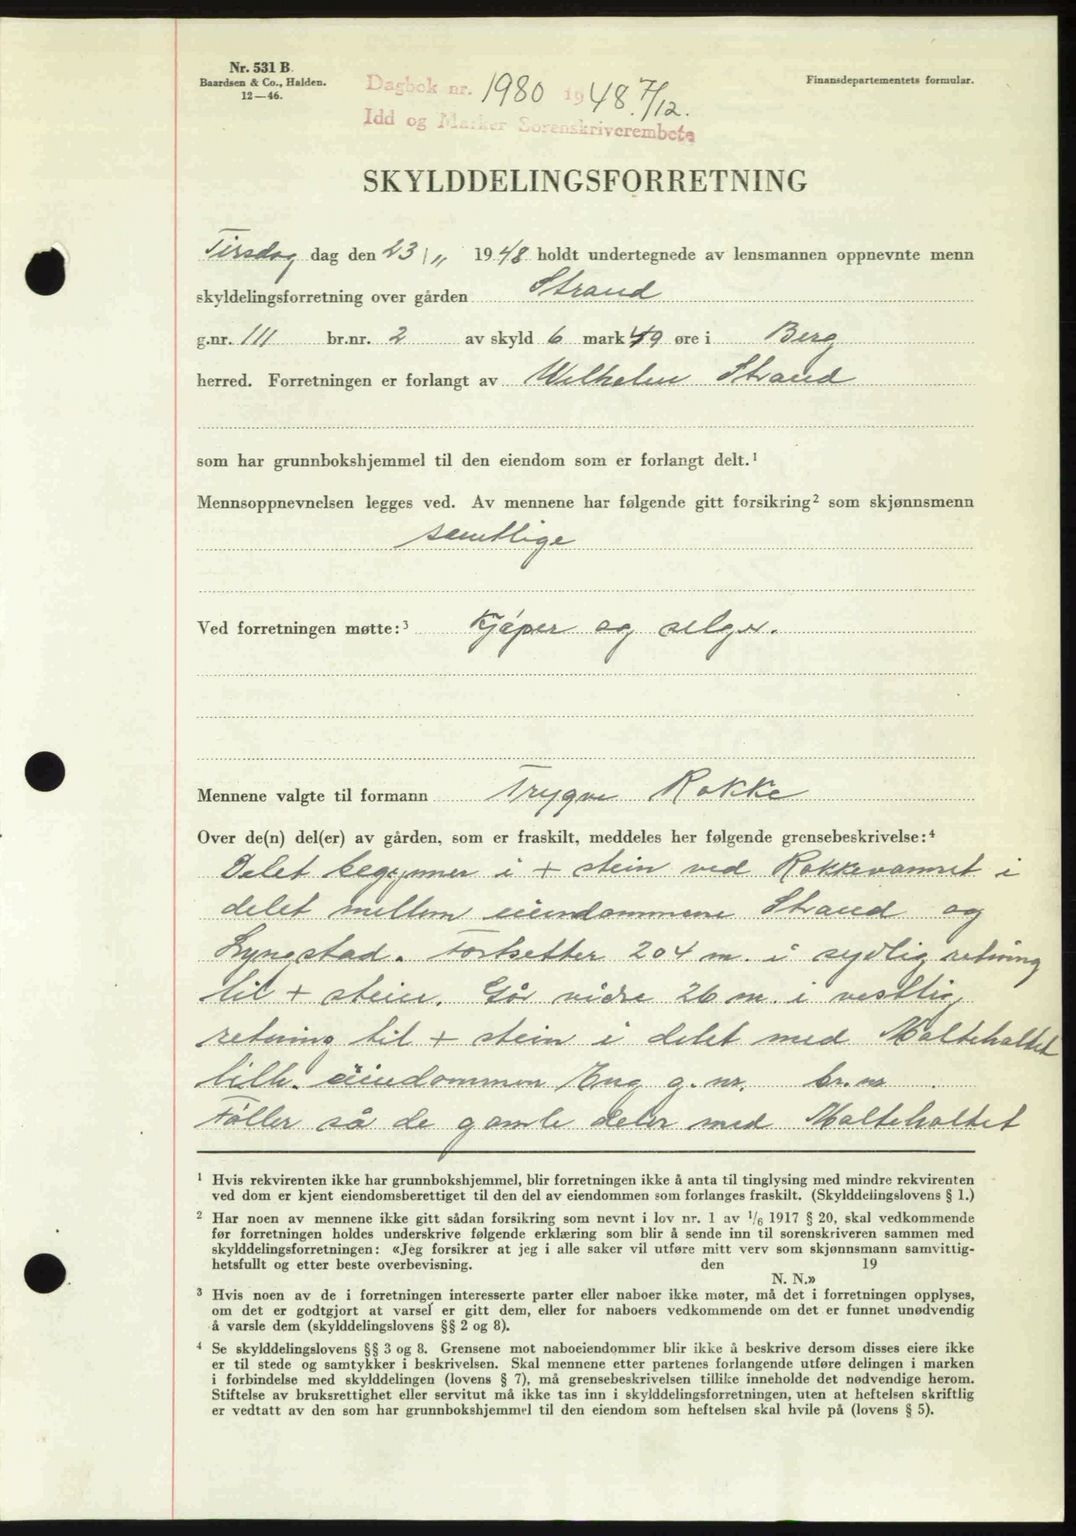 Nr. 531 B.
Baardsen & Co., Halden.
12—46.
Finansdepartementets formular.
Dagbok nr. 1980 1948. 7/12.
Idd og Marker Sorenskriverembete
SKYLDDELINGSFORRETNING
Tirsdag dag den 23/11 1948 holdt undertegnede av lensmannen oppnevnte menn
skyldelingsforretning over gården Strand
g.nr. 111 br.nr. 2 av skyld 6 mark 49 øre i Berg
herred. Forretningen er forlangt av Wilhelm Strand
som har grunnbokshjemmel til den eiendom som er forlangt delt.¹
Mennsoppnevnelsen legges ved. Av mennene har følgende gitt forsikring² som skjønnsmenn
samtlige
Ved forretningen møtte:³ Kjøper og selger.
Mennene valgte til formann Trygve Rokke
Over de(n) del(er) av gården, som er fraskilt, meddeles her følgende grensebeskrivelse:⁴
Delet begynner i + stein ved Rokkevannet i
delet mellom eiendommene Strand og
Lyngstad. Fortsetter 204 m. i sydlig retning
til + stein. Går vidre 26 m. i vestlig
retning til + stein i delet med Malteholtet
tilh. eiendommen Eng g.nr. br.nr .
Føller så de gamle deler med Malteholtet
¹ Hvis rekvirenten ikke har grunnbokshjemmel, blir forretningen ikke å anta til tinglysing med mindre rekvirenten
ved dom er kjent eiendomsberettiget til den del av eiendommen som forlanges fraskilt. (Skylddelingslovens § 1.)
² Har noen av mennene ikke gitt sådan forsikring som nevnt i lov nr. 1 av 1/6 1917 § 20, skal vedkommende
før forretningen holdes underskrive følgende erklæring som blir å sende inn til sorenskriveren sammen med
skylddelingsforretningen: «Jeg forsikrer at jeg i alle saker vil utføre mitt verv som skjønnsmann samvittig-
hetsfullt og etter beste overbevisning. den 19
N. N.»
³ Hvis noen av de i forretningen interesserte parter eller naboer ikke møter, må det i forretningen opplyses,
om det er godtgjort at varsel er gitt dem, eller for naboers vedkommende om det er funnet unødvendig
å varsle dem (skylddelingslovens §§ 2 og 8).
⁴ Se skylddelingslovens §§ 3 og 8. Grensene mot naboeiendommer blir ikke å beskrive dersom disses eiere ikke
er til stede og samtykker i beskrivelsen. Skal mennene etter partenes forlangende utføre delingen i marken
i forbindelse med skylddelingen (lovens § 7), må grensebeskrivelsen tillike inneholde det nødvendige herom.
Stiftelse av bruksrettighet eller servitut må ikke tas inn i skylddelingsforretningen, uten at heftelsen skriftlig
er vedtatt av den som har grunnbokshjemmel til den eiendom som heftelsen skal hvile på (lovens § 5).